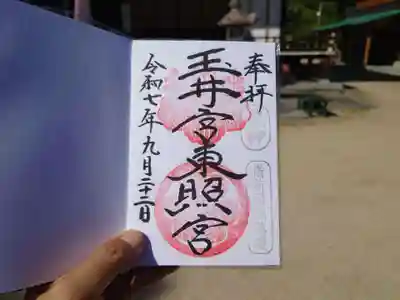 奉拝
玉井宮東照宮
令和七年九月二十三日